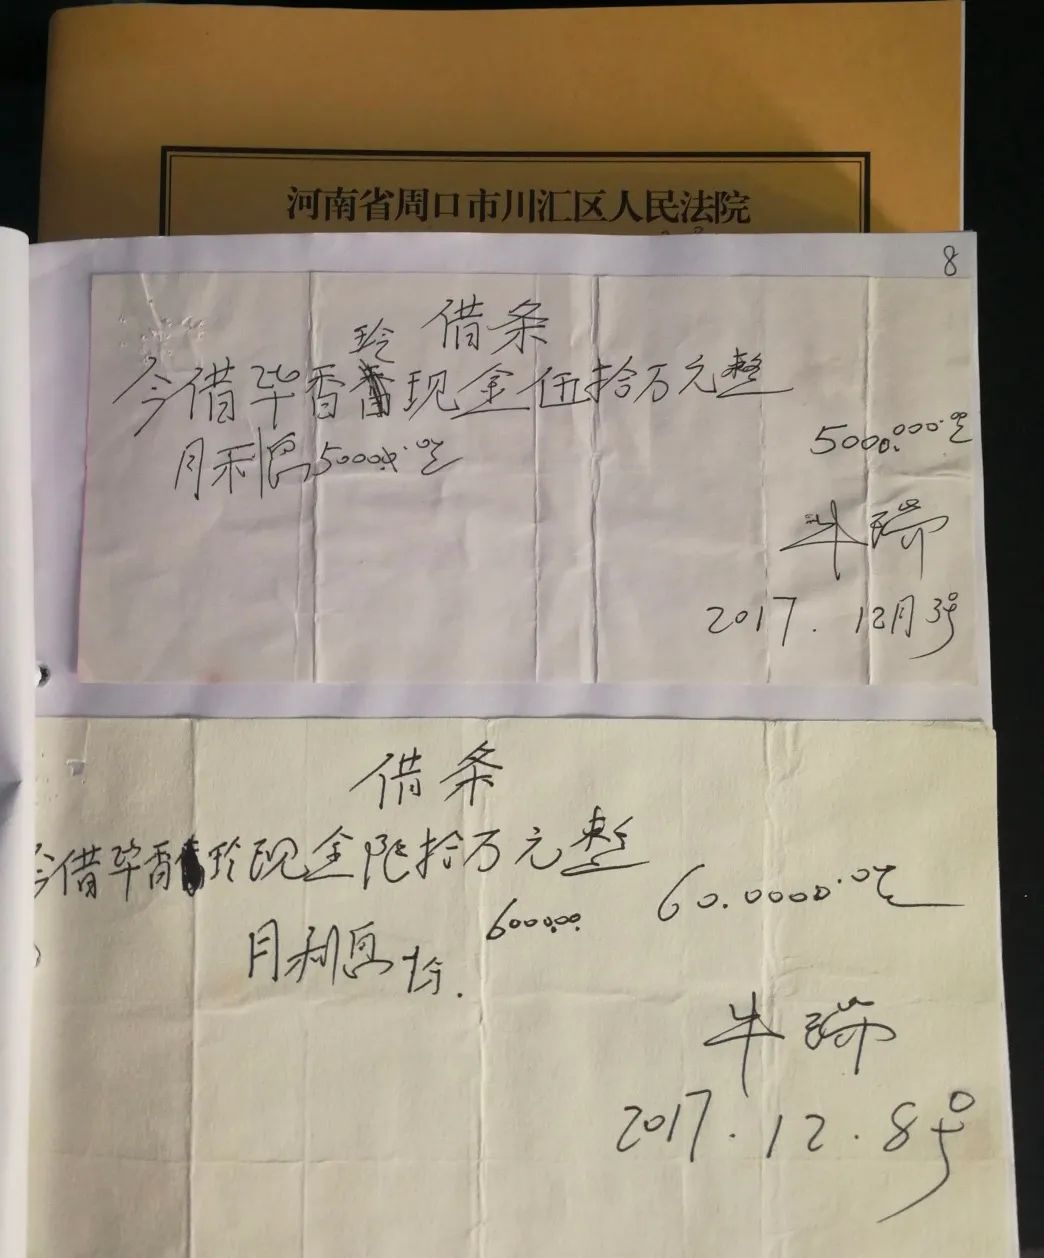 河南省周口市川汇区人民法院
8
借条
玲
今借毕香现金伍拾万元整
500,000.00元
月利息50000.00元
牛瑞
2017.12月3号
借条
今借毕香玲现金陆拾万元整
60.0000.00元
月利息拾分.
600000
牛瑞
2017.12.8号